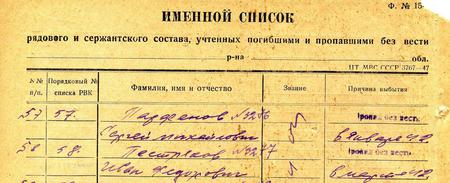 Ф. № 15
ИМЕННОЙ СПИСОК
рядового и сержантского состава, учтенных погибшими и пропавшими без вести
р-на обл.
ЦТ МВС СССР 3767—47
№№ п/п. Порядковый № списка РВК Фамилия, имя и отчество Звание Причина выбытия
57 57. Парфенов Пропал без вести
Сергей Михайлович в январе 42
58 58. Пестряков Пропал без вести
Иван Федорович в марте 42